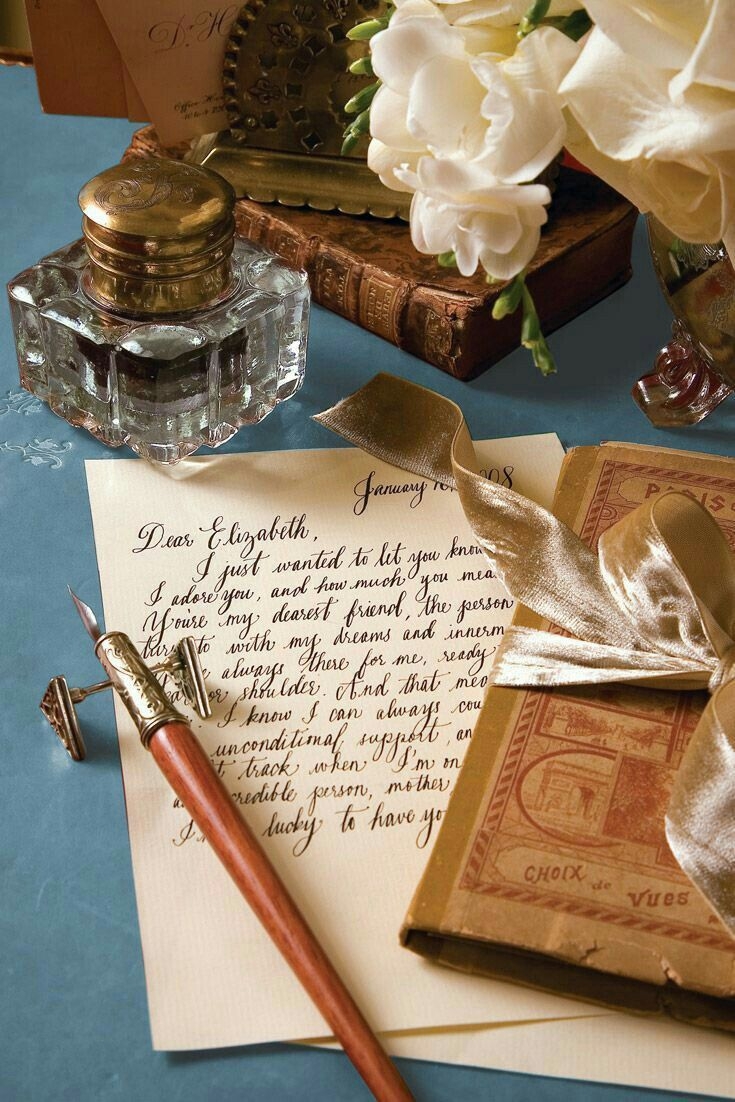 Dr H
Office Ho
10 to 4
January
Dear Elizabeth,
I just wanted to let you know
I adore you, and how much you mea
You're my dearest friend, the person
to with my dreams and innerm
always there for me, ready
or shoulder. And that mea
I know I can always cou
unconditional support, an
track when I'm on
credible person, mother,
I lucky to have yo
PARIS
CHOIX
de
VUES